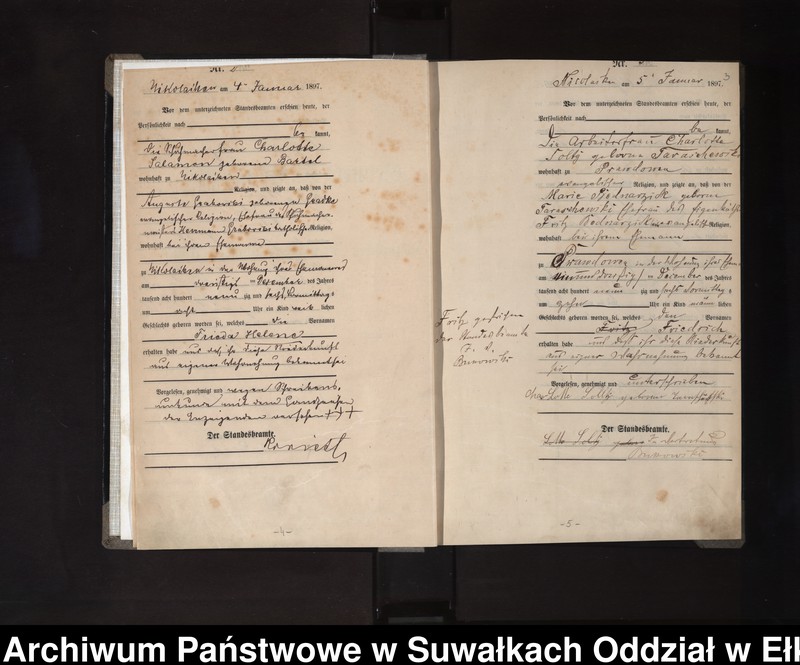 Nr.
Nikolaiken am 4 Januar 1897.
Vor dem unterzeichneten Standesbeamten erschien heute, der
Persönlichkeit nach
be kannt,
die Schuhmacherfrau Charlotte
Salamon geborene Bartel
wohnhaft zu Nikolaiken
Religion, und zeigte an, daß von der
Auguste Grabowski geborenen
evangelischer Religion, Ehefrau des Schuhmacher
Hermann Grabowski katholischer Religion,
wohnhaft bei ihrem Ehemanne
zu Nikolaiken in der Wohnung ihres Ehemannes
am dreißigsten Dezember des Jahres
tausend acht hundert neun zig und sechs Vormittags
um acht Uhr ein Kind weib lichen
Geschlechts geboren worden sei, welches die Vornamen
Frieda Helene
erhalten habe und daß ihr diese Niederkunft
aus eigener Wahrnehmung bekannt sei
Vorgelesen, genehmigt und wegen Schreibens
unkunde mit dem Handzeichen
der Anzeigenden versehen +++
Der Standesbeamte.
-4-
Nr.
3
Nicolaiken am 5 Januar 1897.
Vor dem unterzeichneten Standesbeamten erschien heute, der
Persönlichkeit nach
be kannt,
die Arbeiterfrau Charlotte
geborene
wohnhaft zu Prawdowen
evangelischer Religion, und zeigte an, daß von der
Marie Bednarzick geborene
Ehefrau des
Fritz Bednarzick evangelisch Religion,
wohnhaft bei ihrem Ehemann
zu Prawdowen in der Wohnung ihres Ehemanns
am neunundzwanzig sten Dezember des Jahres
tausend acht hundert neun zig und sechs Vormittags
um zehn Uhr ein Kind männ lichen
Geschlechts geboren worden sei, welches den Vornamen
Fritz Friedrich
erhalten habe und daß ihr diese Niederkunft
aus eigener Wahrnehmung bekannt
sei
Vorgelesen, genehmigt und unterschrieben
Charlotte geborene
Der Standesbeamte.
In Vertretung
Fritz gestrichen
der Standesbeamte
-5-
Archiwum Państwowe w Suwałkach Oddział w Ełk